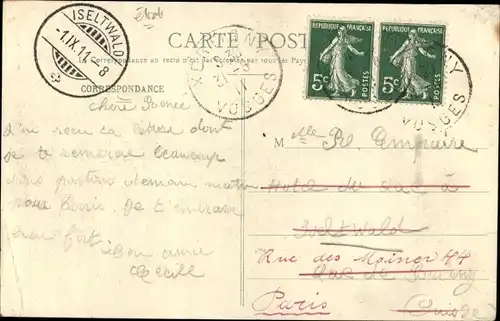 ISELTWALD
-1.IX.11-8
CARTE POST
RÉPUBLIQUE FRANÇAISE
5c
POSTES
RÉPUBLIQUE FRANÇAISE
5c
POSTES
VOSGES
VOSGES
La Correspondance au recto n'est pas acceptée par tous les Pays
CORRESPONDANCE
Chère
j'ai reçu ta lettre dont
je te remercie beaucoup
nous partons demain matin
pour Paris. Je t'embrasse
bien fort
Bon amie
Cecile
M elle
Hotel du Lac à
Iseltwald
Rue des Moines 44
Lac de
Paris
Suisse